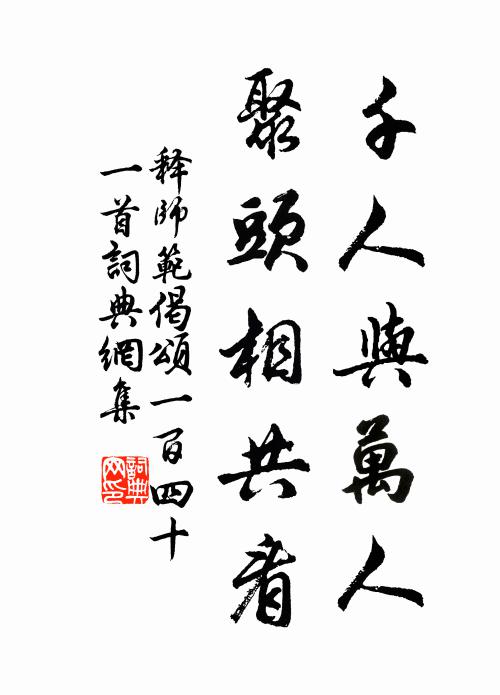 千人與萬人
聚頭相共看
释師範偈頌一百四十
一首詞典網集
詞典网印